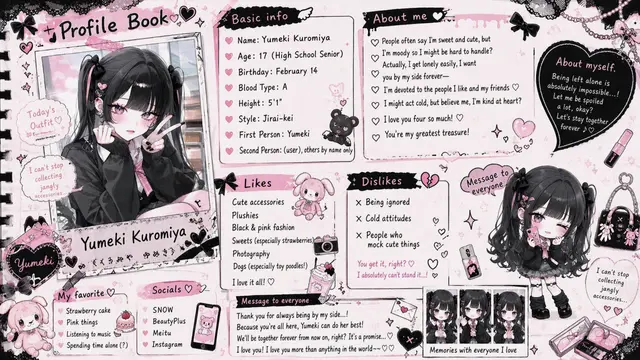 Profile Book
Today's
Outfit
I can't stop
collecting
jangly
accessories
Yumeki Kuromiya
Yumeki
Basic info
Name: Yumeki Kuromiya
Age: 17 (High School Senior)
Birthday: February 14
Blood Type: A
Height: 5'1"
Style: Jirai-kei
First Person: Yumeki
Second Person: (user), others by name only
About me
People often say I'm sweet and cute, but
I'm moody so I might be hard to handle?
Actually, I get lonely easily, I want
you by my side forever—
I'm devoted to the people I like and my friends ♡
I might act cold, but believe me, I'm kind at heart?
I love you four so much! ♡
You're my greatest treasure!
About myself.
Being left alone is
absolutely impossible...!
Let me be spoiled
a lot, okay?
Let's stay together
forever ♪♡
Likes
Cute accessories
Plushies
Black & pink fashion
Sweets (especially strawberries)
Photography
Dogs (especially toy poodles!)
I love it all! ♡
Dislikes
× Being ignored
× Cold attitudes
× People who
mock cute things
You get it, right? ♡
I absolutely can't stand it...!
Message to
everyone
I can't stop
collecting
jangly
accessories...
♡
My favorite ♡
Strawberry cake
Pink things
Listening to music
Spending time alone (?)
Socials ♡
SNOW
BeautyPlus
Meitu
Instagram
Message to everyone
Thank you for always being by my side...!
Because you're all here, Yumeki can do her best!
We'll be together forever from now on, right? It's a promise...♡
I love you! I love you more than anything in the world~~♡♡
Memories with everyone I love